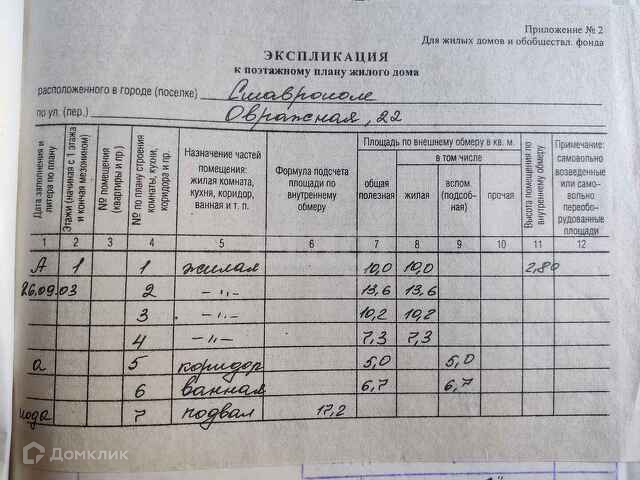 Приложение № 2
Для жилых домов и обобществл. фонда
ЭКСПЛИКАЦИЯ
к поэтажному плану жилого дома
расположенного в городе (поселке) Ставрополе
по ул. (пер.) Овражная, 22
Дата заполнения и литера по плану
Этажи (начиная с 1 этажа и кончая мезонином)
№ помещения (квартиры и пр.)
№ по плану строения комнаты, кухни, коридора и пр.
Назначение частей помещения: жилая комната, кухня, коридор, ванная и т. п.
Формула подсчета площади по внутреннему обмеру
Площадь по внешнему обмеру в кв. м.
в том числе
общая полезная
жилая
вспом. (подсобная)
прочая
Высота помещения по внутреннему обмеру
Примечание: самовольно возведенные или самовольно переоборудованные площади
1 2 3 4 5 6 7 8 9 10 11 12
А 1 1 жилая 10,0 10,0 2,80
26.09.03 2 –"– 13,6 13,6
3 –"– 10,2 10,2
4 –"– 7,3 7,3
а 5 коридор 5,0 5,0
6 ванная 6,7 6,7
7 подвал 17,2
Домклик